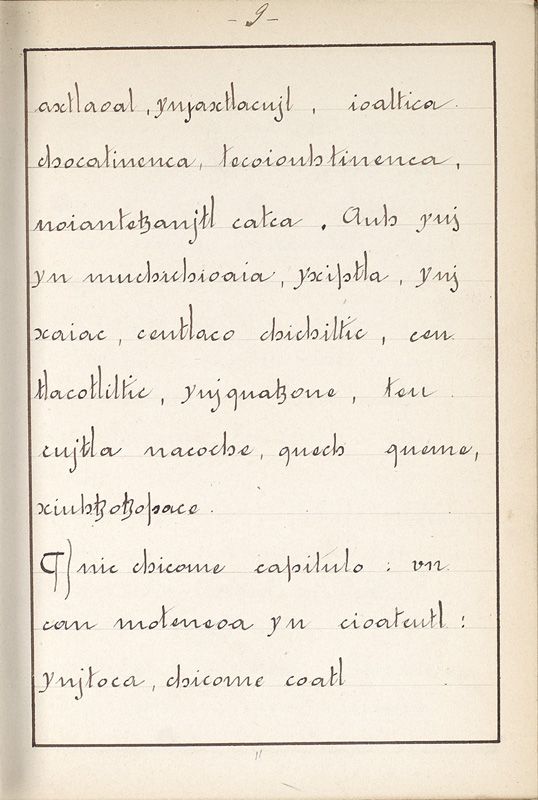 - 9 -
axtlaoal, ynjaxtlacujl, ioaltica
chocatinenca, tecoiouhtinenca,
noiantetzanjtl catca. Auh ynj
yn muchichioaia, yxiptla, ynj
xaiac, centlaco chichiltic, cen
tlacotliltic, ynjquatzone, teu
cujtla nacoche, quech queme,
xiuhtzotzopace.
¶) nic chicome capitulo: vn
can moteneoa yn cioateutl:
ynjtoca, chicome coatl
11